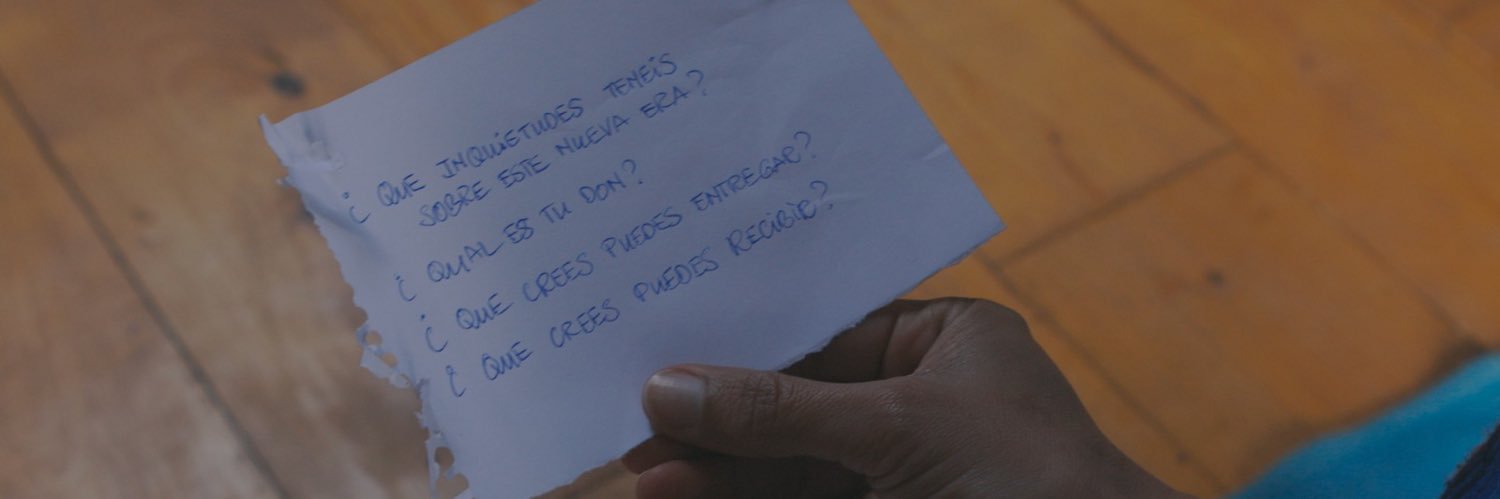 ¿ QUE INQUIETUDES TENEIS
SOBRE ESTE NUEVA ERA?
¿ QUAL ES TU DON?
¿ QUE CREES PUEDES ENTREGAR?
¿ QUE CREES PUEDES RECIBIR?